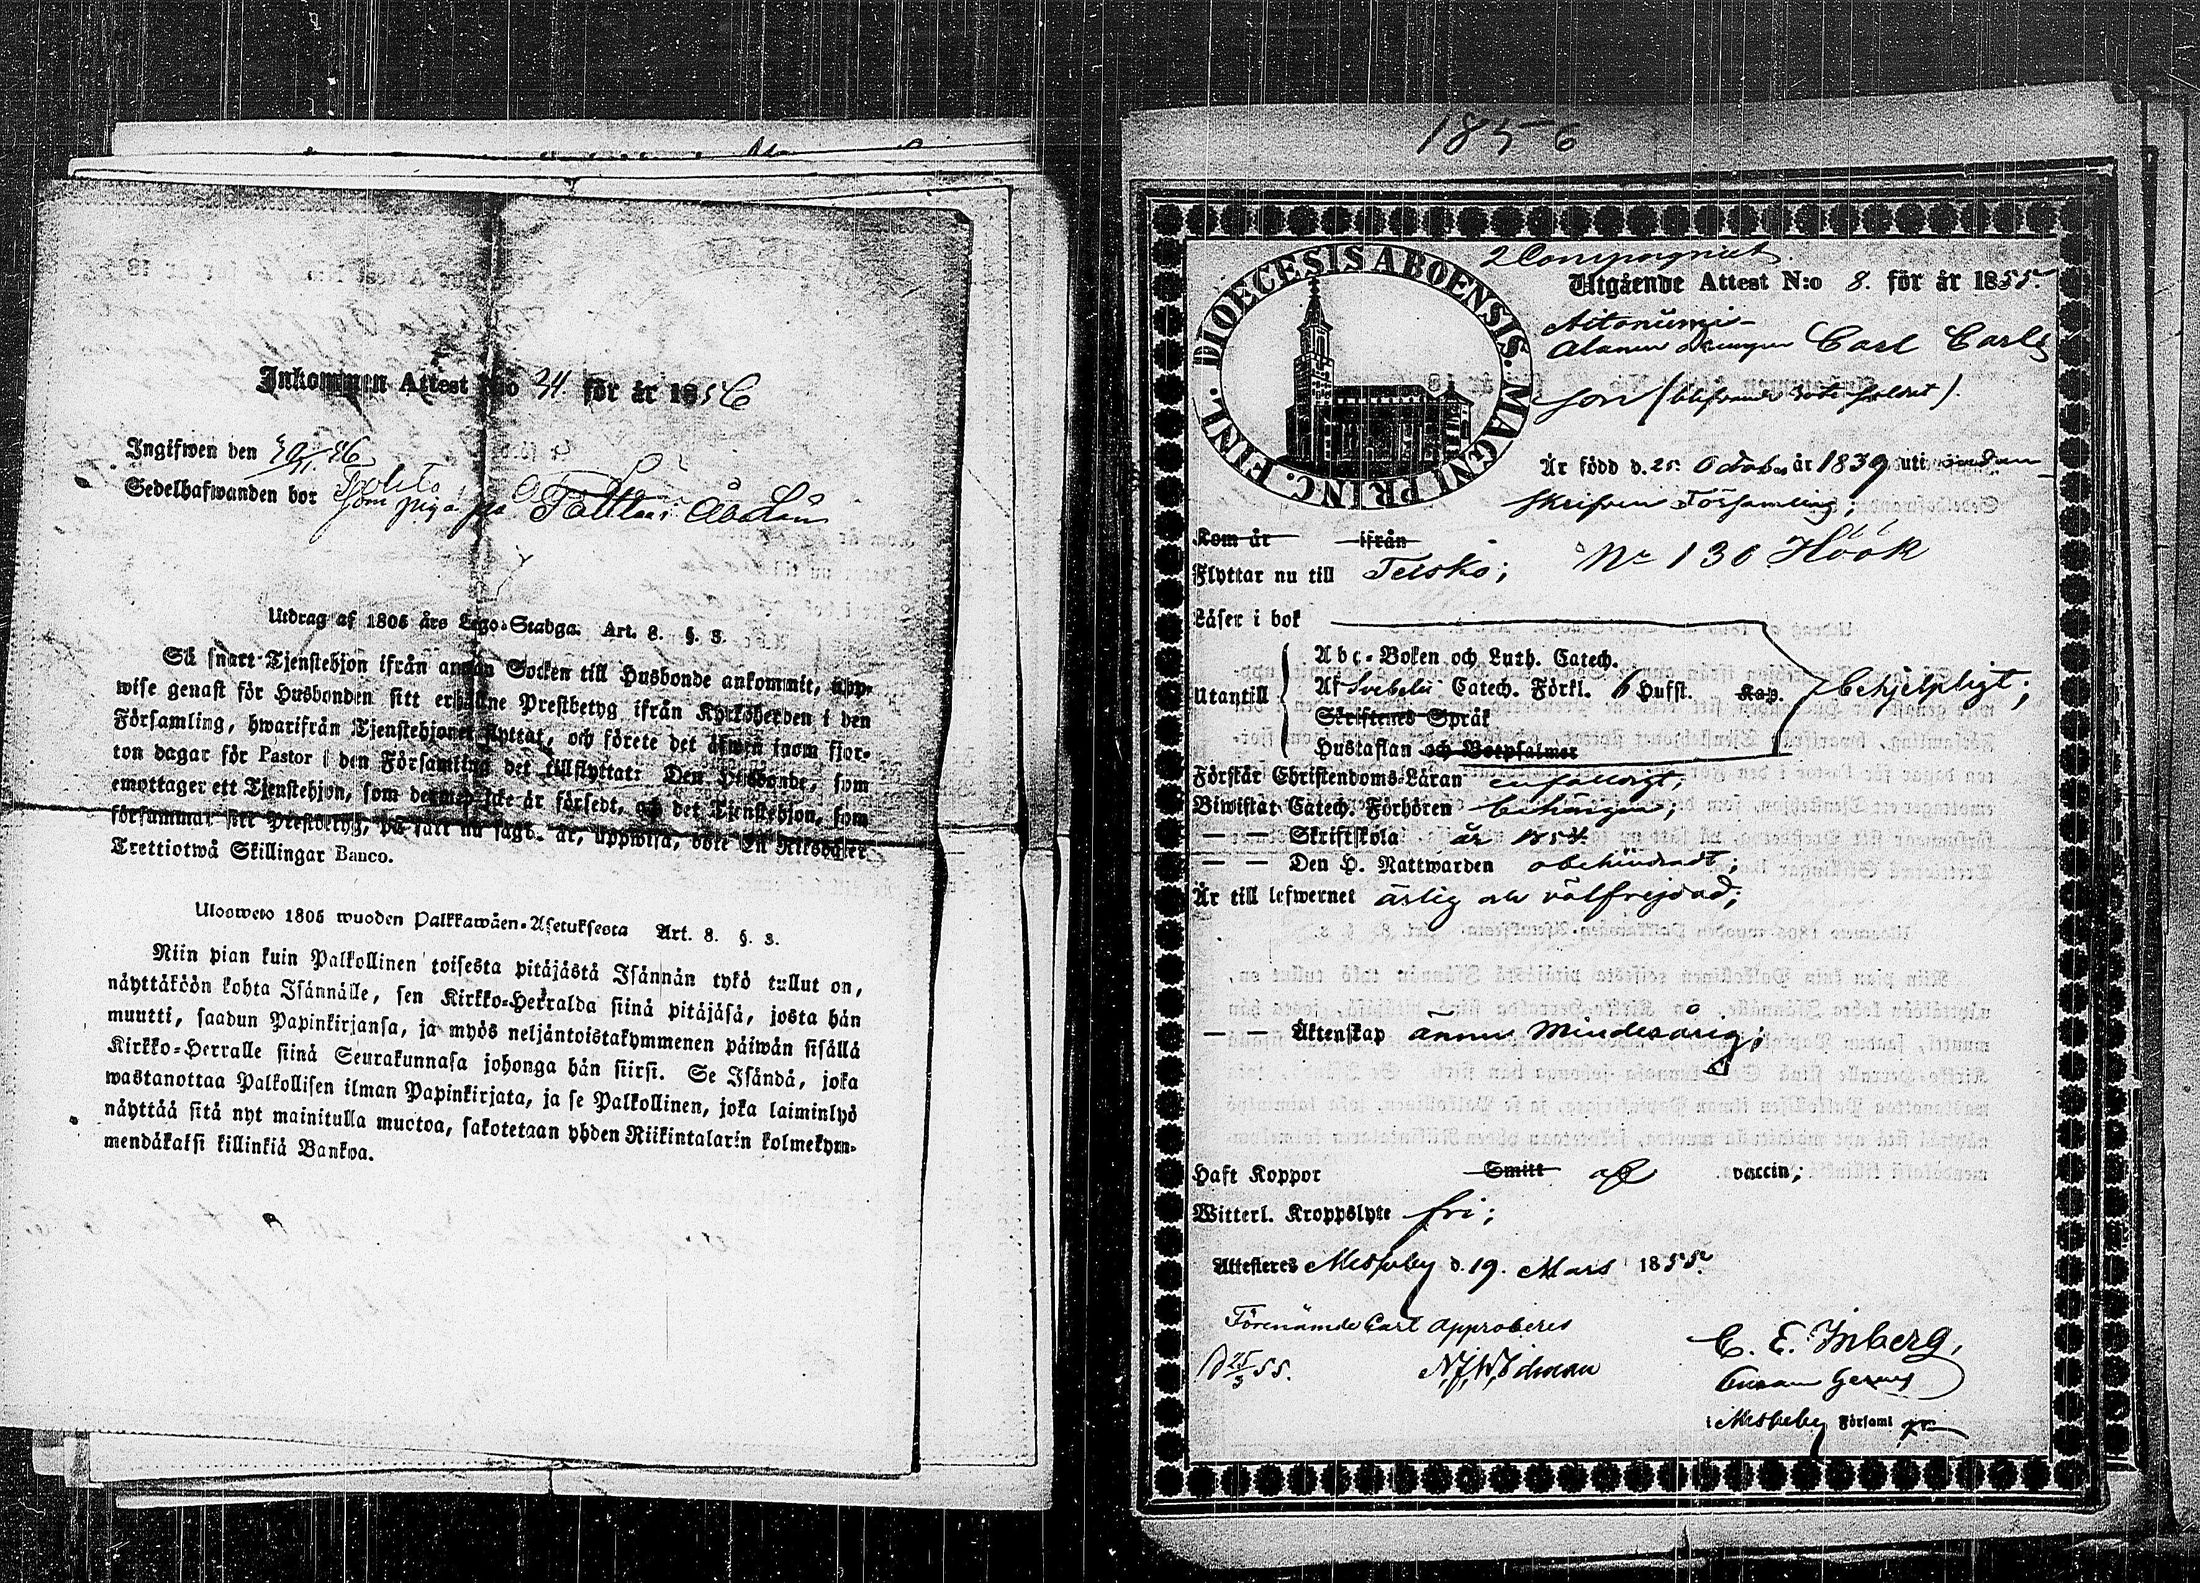 Inkommen Attest N:o 34. för år 1856
Ingifwen den 30/11 56
Sedelhafwanden bor
som piga på
Utdrag af 1805 års Lego-Stadga. Art. 8. §. 3.
Så snart Tjenstehjon ifrån annan Socken till Husbonde ankommit, upp-
wise genast för Husbonden sitt erhållne Prestbetyg ifrån Kyrkoherden i den
Församling, hwarifrån Tjenstehjonet flyttat, och förete det äfwen inom fjor-
ton dagar för Pastor i den Församling det tillflyttat: Den Husbonde, som
emottager ett Tjenstehjon, som dermed icke är försedt, och det Tjenstehjon, som
försummar sitt Prestbetyg, på sätt nu sagt är, uppwisa, böte En Riksdaler
Trettiotwå Skillingar Banco.
Ulosweto 1805 wuoden Palkkawäen-Asetuksesta Art. 8. §. 3.
Niin pian kuin Palkollinen toisesta pitäjästä Isännän tykö tullut on,
näyttäköön kohta Isännälle, sen Kirkko-Herralda siinä pitäjäsä, josta hän
muutti, saadun Papinkirjansa, ja myös neljäntoistakymmenen päiwän sisällä
Kirkko-Herralle siinä Seurakunnasa johonga hän siirsi. Se Isändä, joka
wastanottaa Palkollisen ilman Papinkirjata, ja se Palkollinen, joka laiminlyö
näyttää sitä nyt mainitulla muotoa, sakotetaan yhden Riikintalarin kolmekym-
mendäkaksi killinkiä Bankoa.
1856
DIOECESIS ABOENSIS. MAGNI PRINC. FINL.
2 Compagniet.
Utgående Attest N:o 8. för år 1855.
Carl Carls
son
Är född d. 25. Octob. år 1839 uti ofvan
skrifven Församling;
Kom år ifrån
Flyttar nu till Teisko; No 130 Höök
Läser i bok
Utantill
Abc-Boken och Luth. Catech.
Af Svebelii Catech. Förkl. 6 Hufst. Kap. behjelpligt;
Skriftenes Språk
Hustaflan och Botpsalmer
Förstår Christendoms-Läran enfaldigt;
Biwistat Catech. Förhören behörigen;
— — Skriftskola år 1854.
— — Den H. Nattwarden obehindradt;
Är till lefwernet ärlig och välfrejdad;
— — Äktenskap ännu minderårig;
Haft Koppor Smitt af vaccin;
Witterl. Kroppslyte fri;
Attesteras Messuby d. 19. Mars 1855.
Förenämde Carl approberes
D 25/3 55.
C. E. Inberg,
i Messuby Församl